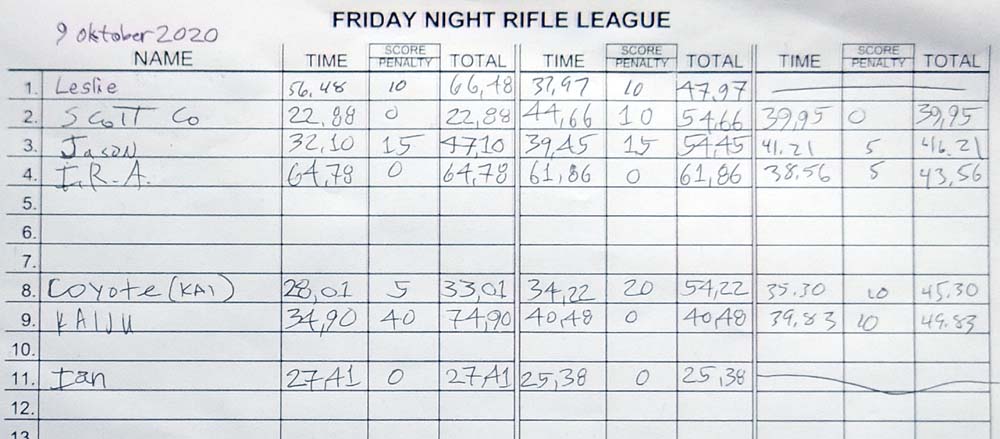 FRIDAY NIGHT RIFLE LEAGUE
9 oktober 2020
NAME TIME SCORE PENALTY TOTAL TIME SCORE PENALTY TOTAL TIME SCORE PENALTY TOTAL
1. Leslie 56,48 10 66,48 37,97 10 47,97
2. SCOTT Co 22,88 0 22,88 44,66 10 54,66 39,95 0 39,95
3. Jason 32,10 15 47,10 39,45 15 54,45 41.21 5 46.21
4. I.R.A. 64,78 0 64,78 61,86 0 61,86 38,56 5 43,56
5.
6.
7.
8. Coyote (KAI) 28,01 5 33,01 34,22 20 54,22 35.30 10 45.30
9. KAIJU 34,90 40 74,90 40,48 0 40,48 39,83 10 49.83
10.
11. Ian 27,41 0 27,41 25,38 0 25,38
12.
13